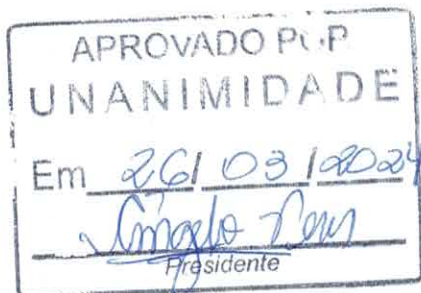 APROVADO POR
UNANIMIDADE
Em 26/ 03 /2024
Presidente